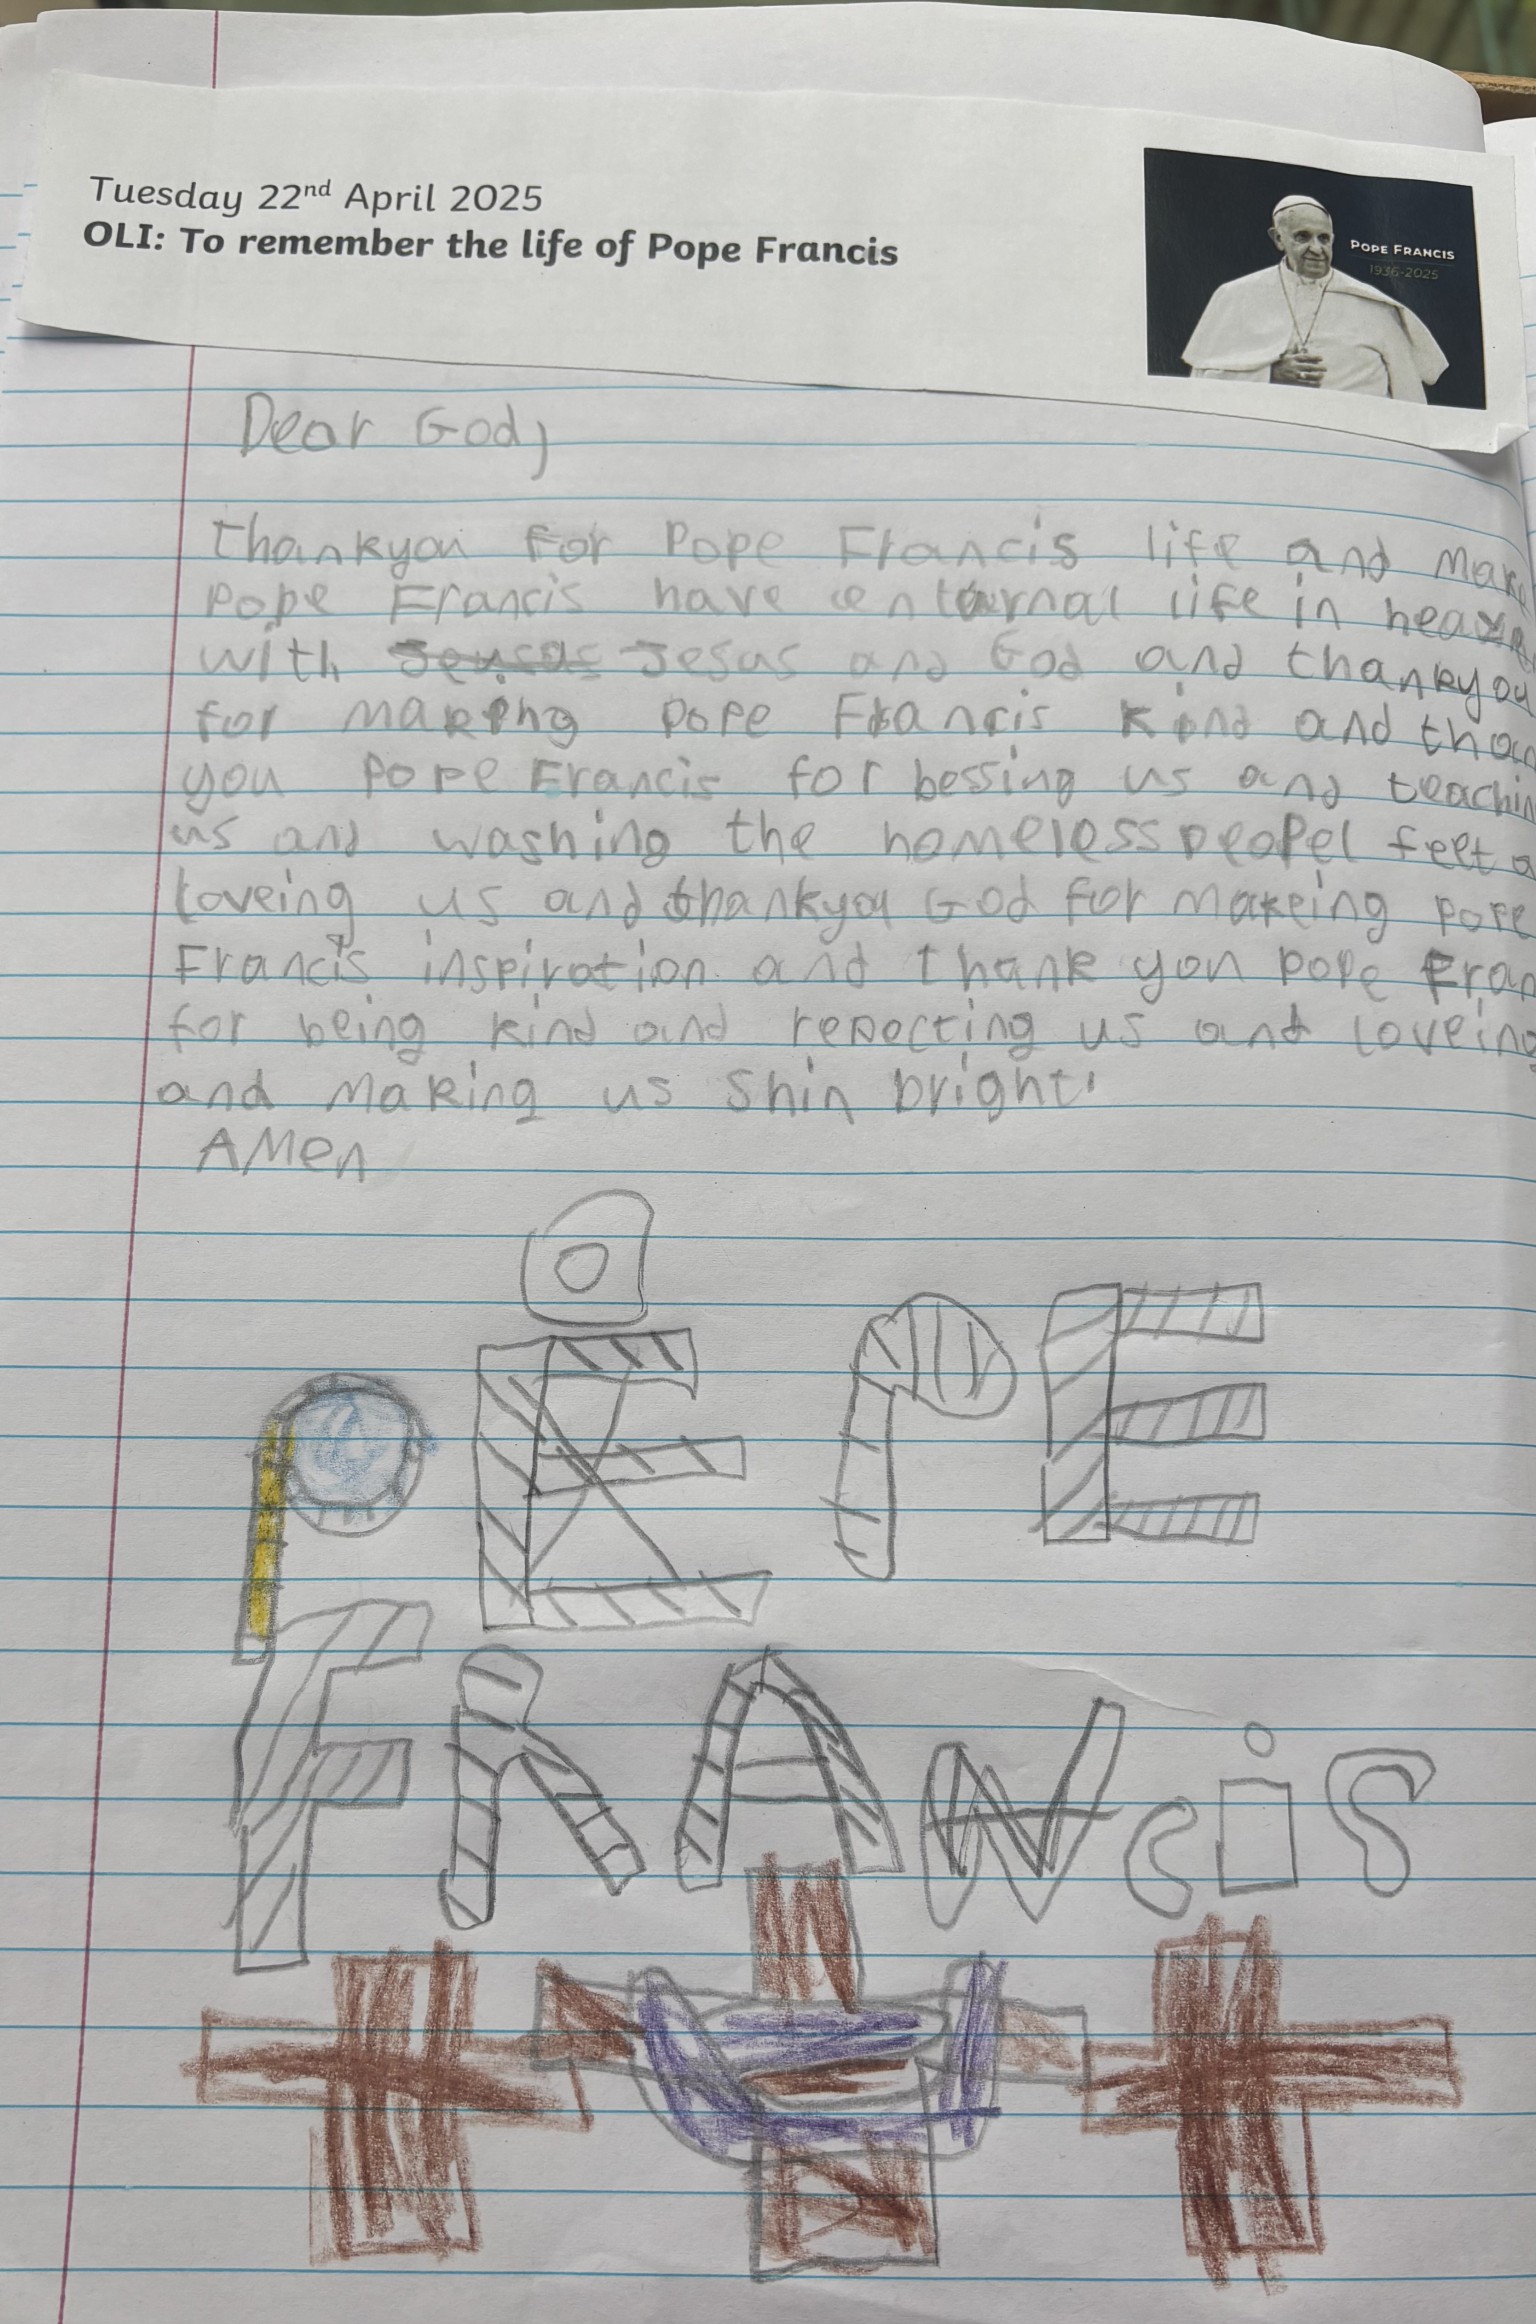 Tuesday 22nd April 2025
OLI: To remember the life of Pope Francis
POPE FRANCIS
1936-2025
Dear God,
thankyou for Pope Francis life and make
Pope Francis have enternal life in heaven
with Jesus and God and thankyou
for making Pope Francis kind and than
you Pope Francis for bessing us and teachin
us and washing the homeless peopel feet a
loveing us and thankyou God for makeing Pope
Francis inspiration and thank you Pope Fran
for being kind and repecting us and loveing
and making us shin bright.
AMen
PE
FRANciS